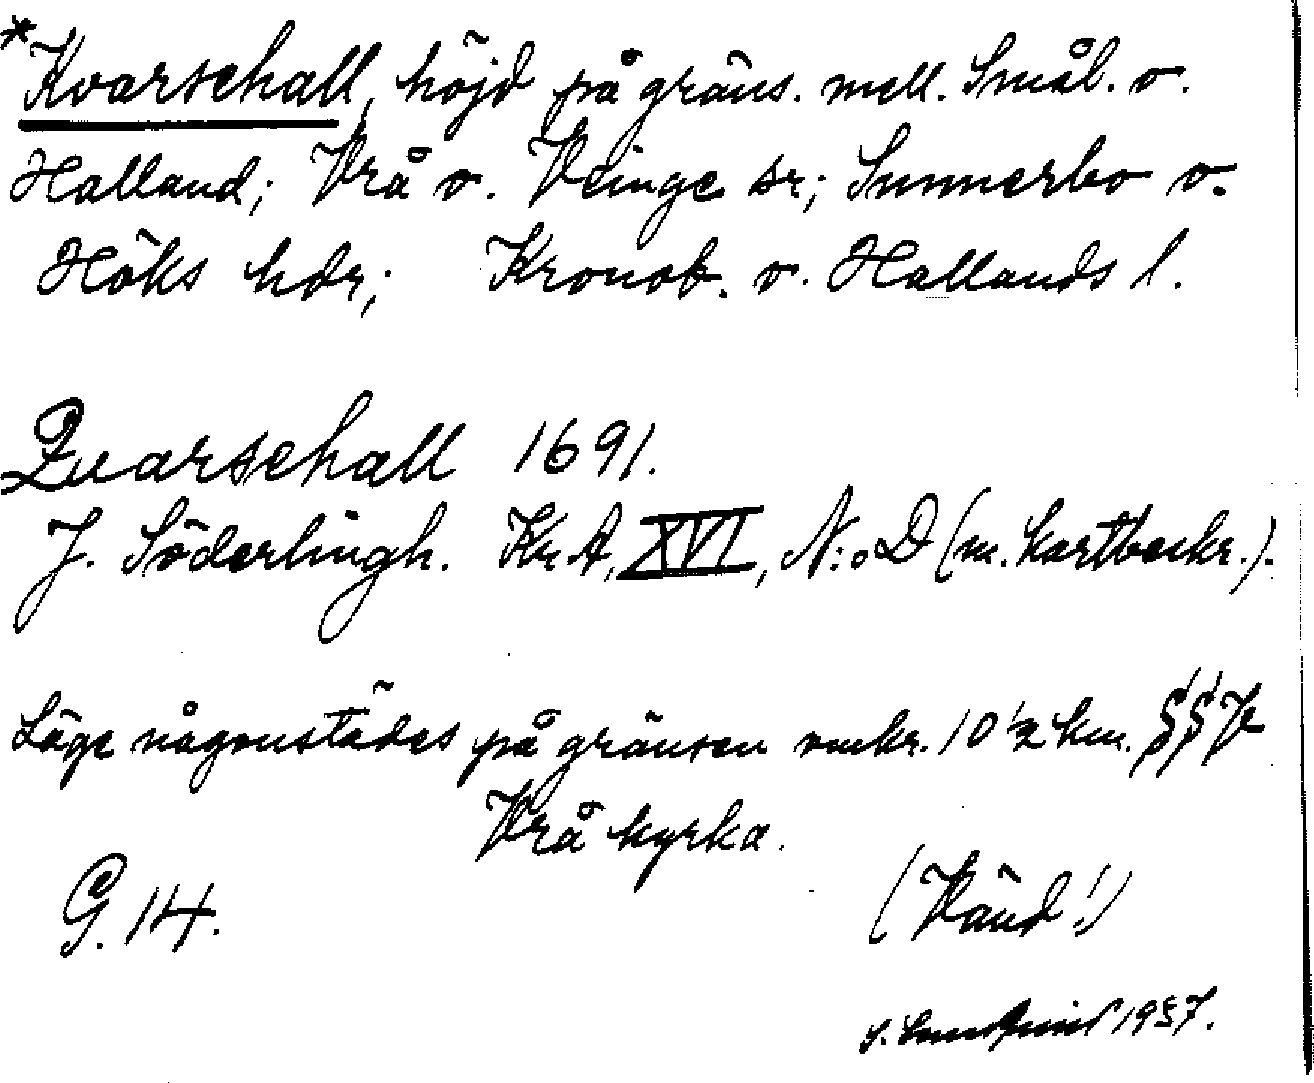 *Kvarsehall, höjd på gräns. mell. Smål. o.
Halland; Vrå o. Veinge sr; Sunnerbo o.
Höks hdr; Kronob. o. Hallands l.
Quarsehall 1691.
J. Söderlingh. Kr. A, XVI, N:o D (m. kartbeskr.).
Läge någonstädes på gränsen omkr. 10 1/2 km.
Vrå kyrka.
G. 14.
(Vänd!)
1957.